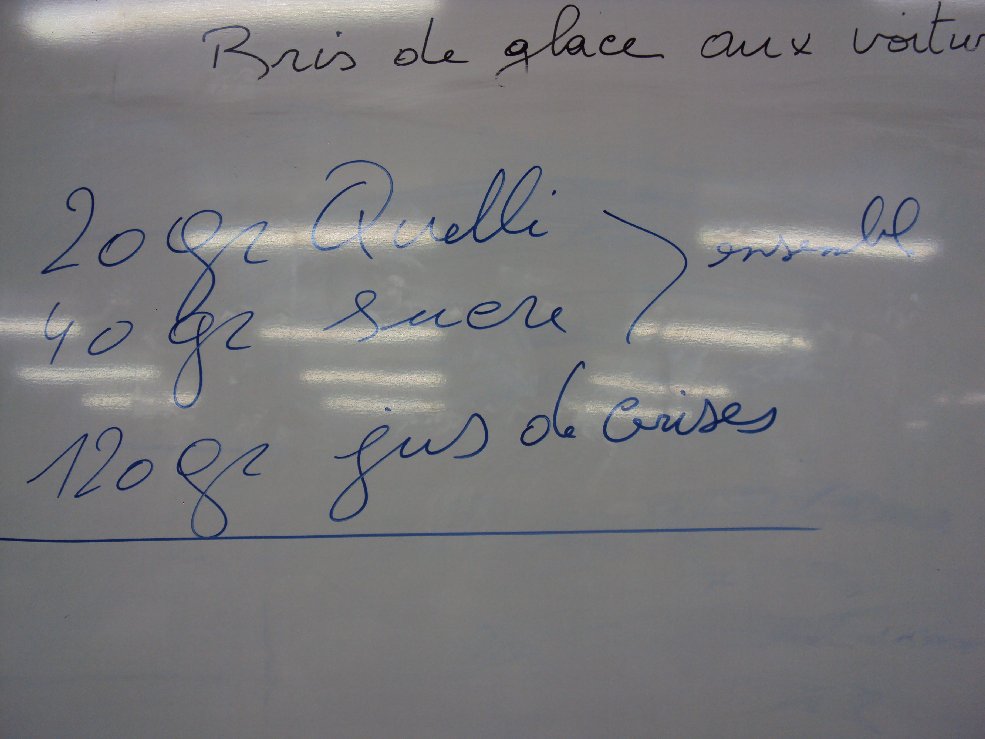 Bris de glace aux voitur
20 gr Quelli
ensembl
40 gr sucre
120 gr jus de cerises